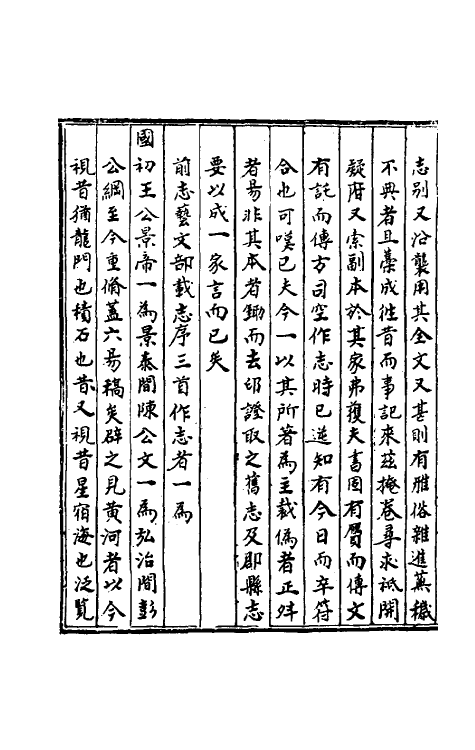 志別又沿襲用其全文又甚則有雅俗雜進蕪穢
不典者且藁成徃昔而事記來茲掩卷尋求祇開
疑府又索副本於其家弗獲夫書固有贋而傳文
有託而傳方司空作志時已逆知有今日而卒符
合也可嘆已夫今一以其所著為主載偽者正舛
者易非其本者鋤而去印證取之舊志及郡縣志
要以成一家言而已矣
前志藝文部載志序三首作志者一為
國初王公景帝一為景泰間陳公文一為弘治間彭
公綱至今重脩蓋六易稿矣辟之見黃河者以今
視昔猶龍門也積石也昔又視昔星宿海也泛覽